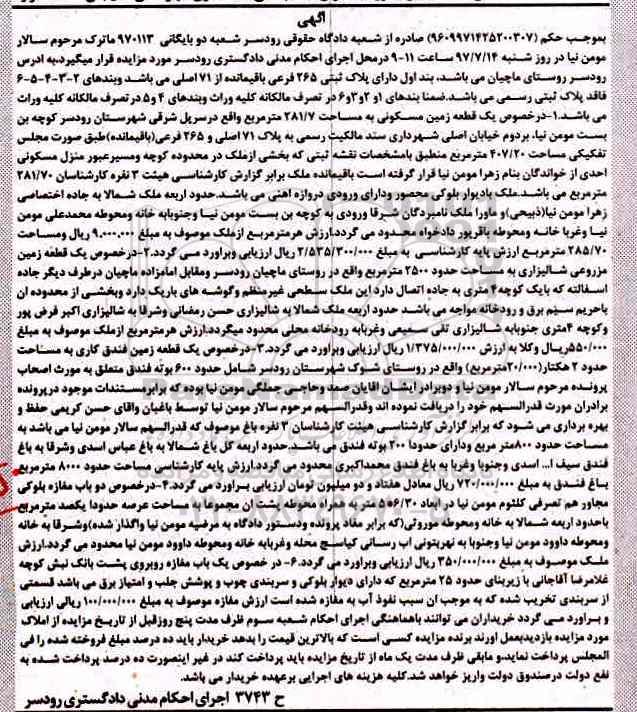 آگهی
بموجب حکم (۹۶۰۹۹۷۱۴۲۵۲۰۰۳۰۷) صادره از شعبه دادگاه حقوقی رودسر شعبه دو بایگانی ۹۷۰۱۱۳ ماترک مرحوم سالار
مومن نیا در روز شنبه ۹۷/۷/۱۴ ساعت ۱۱-۹ درمحل اجرای احکام مدنی دادگستری رودسر مورد مزایده قرار میگیرد.به ادرس
رودسر روستای ماچیان می باشد، بند اول دارای پلاک ثبتی ۲۶۵ فرعی باقیمانده از ۷۱ اصلی می باشد وبندهای ۲-۳-۴-۵-۶
فاقد پلاک ثبتی رسمی می باشد.ضمنا بندهای ۱و ۲و۳و۶ در تصرف مالکانه کلیه وراث وبندهای ۴ و۵ در تصرف مالکانه کلیه وراث
می باشد.۱-درخصوص یک قطعه زمین مسکونی به مساحت ۲۸۱/۷ مترمربع واقع درسرپل شرقی شهرستان رودسر کوچه بن
بست مومن نیا، بردوم خیابان اصلی شهرداری سند مالکیت رسمی به پلاک ۷۱ اصلی و ۲۶۵ فرعی(باقیمانده)طبق صورت مجلس
تفکیکی مساحت ۴۰۷/۲۰ مترمربع منطبق بامشخصات نقشه ثبتی که بخشی ازملک در محدوده کوچه ومسیرعبور منزل مسکونی
احدی از خواندگان بنام زهرا مومن نیا قرار گرفته است باقیمانده ملک برابر گزارش کارشناسی هیئت ۳ نفره کارشناسان ۲۸۱/۷۰
مترمربع می باشد.ملک بادیوار بلوکی محصور ودارای ورودی دروازه اهنی می باشد.حدود اربعه ملک شمالا به جاده اختصاصی
زهرا مومن نیا(ذبیحی)و ماورا ملک نامبردگان شرقا ورودی به کوچه بن بست مومن نیا وجنوبابه خانه ومحوطه محمدعلی مومن
نیا وغربا خانه ومحوطه باقرپور دادخواه محدود می گردد.ارزش هرمترمربع ازملک موصوف به مبلغ ۹.۰۰۰.۰۰۰ ریال ومساحت
۲۸۵/۷۰ مترمربع ارزش پایه کارشناسی به مبلغ ۲/۵۳۵/۳۰۰/۰۰۰ ریال ارزیابی وبراورد می گردد.۲-درخصوص یک قطعه زمین
مزروعی شالیزاری به مساحت حدود ۲۵۰۰ مترمربع واقع در روستای ماچیان رودسر ومقابل امامزاده ماچیان درطرف دیگر جاده
اسفالته که بایک کوچه۴ متری به جاده اتصال دارد این ملک سطحی غیرمنظم وگوشه های باریک دارد وبخشی از محدوده ان
باحریم سیم برق و رودخانه مواجه می باشد حدود اربعه ملک شمالا به شالیزاری حسن رمضانی وشرقا به شالیزاری اکبر فرض پور
وکوچه ۴متری جنوبابه شالیزاری تقی سمیعی وغربابه رودخانه محلی محدود میگردد.ارزش هرمترمربع ازملک موصوف به مبلغ
۵۵۰/۰۰۰ریال وکلا به ارزش ۱/۳۷۵/۰۰۰/۰۰۰ ریال ارزیابی وبراورد می گردد.۳-درخصوص یک قطعه زمین فندق کاری به مساحت
حدود ۲ هکتار(۲۰/۰۰۰مترمربع) واقع در روستای شوک شهرستان رودسر شامل حدود ۶۰۰ بوته فندق متعلق به مورث اصحاب
پرونده مرحوم سالار مومن نیا و دوبرادر ایشان اقایان صمد وحاجی جملگی مومن نیا بوده که برابرمستندات موجود درپرونده
برادران مورث قدرالسهم خود را دریافت نموده اند وقدرالسهم مرحوم سالار مومن نیا توسط باغبان واقای حسن کریمی حفظ و
بهره برداری می شود که برابر گزارش کارشناسی هیئت کارشناسان ۳ نفره باغ موصوف که قدرالسهم سالار مومن نیا می باشد به
مساحت حدود ۸۰۰۰متر مربع ودارای حدودا ۲۰۰ بوته فندق می باشد.حدود اربعه کل باغ شمالا به باغ عباس اسدی وشرقا به باغ
فندق سیف ا... اسدی وجنوبا وغربا به باغ فندق محمداکبری محدود می گردد.ارزش پایه کارشناسی مساحت حدود ۸۰۰۰ مترمربع
باغ فندق به مبلغ ۷۲۰/۰۰۰/۰۰۰ ریال معادل هفتاد و دو میلیون تومان ارزیابی براورد می گردد.۴-درخصوص دو باب مغازه بلوکی
مجاور هم تصرفی کلثوم مومن نیا در ابعاد ۶/۳۰*۵ متر به همراه محوطه پشت ان مجموعا به مساحت عرصه حدودا یکصد مترمربع
باحدود اربعه شمالا به خانه ومحوطه موروثی(که برابر مفاد پرونده ودستور دادگاه به مرضیه مومن نیا واگذار شده)وشرقا به خانه
ومحوطه داوود مومن نیا وجنوبا به نهرپتونی اب رسانی کیاسج محله وغربابه خانه ومحوطه داوود مومن نیا محدود می گردد.ارزش
ملک موصوف به مبلغ ۳۵۰/۰۰۰/۰۰۰ ریال ارزیابی وبراورد می گردد.۶- در خصوص یک باب مغازه روبروی پشت بانک نبش کوچه
غلامرضا آقاجانی با زیربنای حدود ۲۵ مترمربع که دارای دیوار بلوکی و سربندی چوب و پوشش جلب و امتیاز برق می باشد قسمتی
از سربندی تخریب شده که به موجب ان سبب نفوذ آب به مغازه شده است ارزش مغازه موصوف به مبلغ ۱۰۰/۰۰۰/۰۰۰ ریالی ارزیابی
و براورد می گردد خریداران می توانند باهماهنگی اجرای احکام شعبه سوم ظرف مدت پنج روزقبل از تاریخ مزایده از املاک
مورد مزایده بازدیدبعمل اورند برنده مزایده کسی است که بالاترین قیمت را بدهد خریدار باید ده درصد مبلغ فروخته شده را فی
المجلس پرداخت نماید.و مابقی ظرف مدت یک ماه از تاریخ مزایده باید پرداخت کند در غیر اینصورت ده درصد پرداخت شده به
نفع دولت درصندوق دولت واریز خواهد شد.کلیه هزینه های اجرایی برعهده خریدار می باشد.
ح ۳۷۴۳ اجرای احکام مدنی دادگستری رودسر